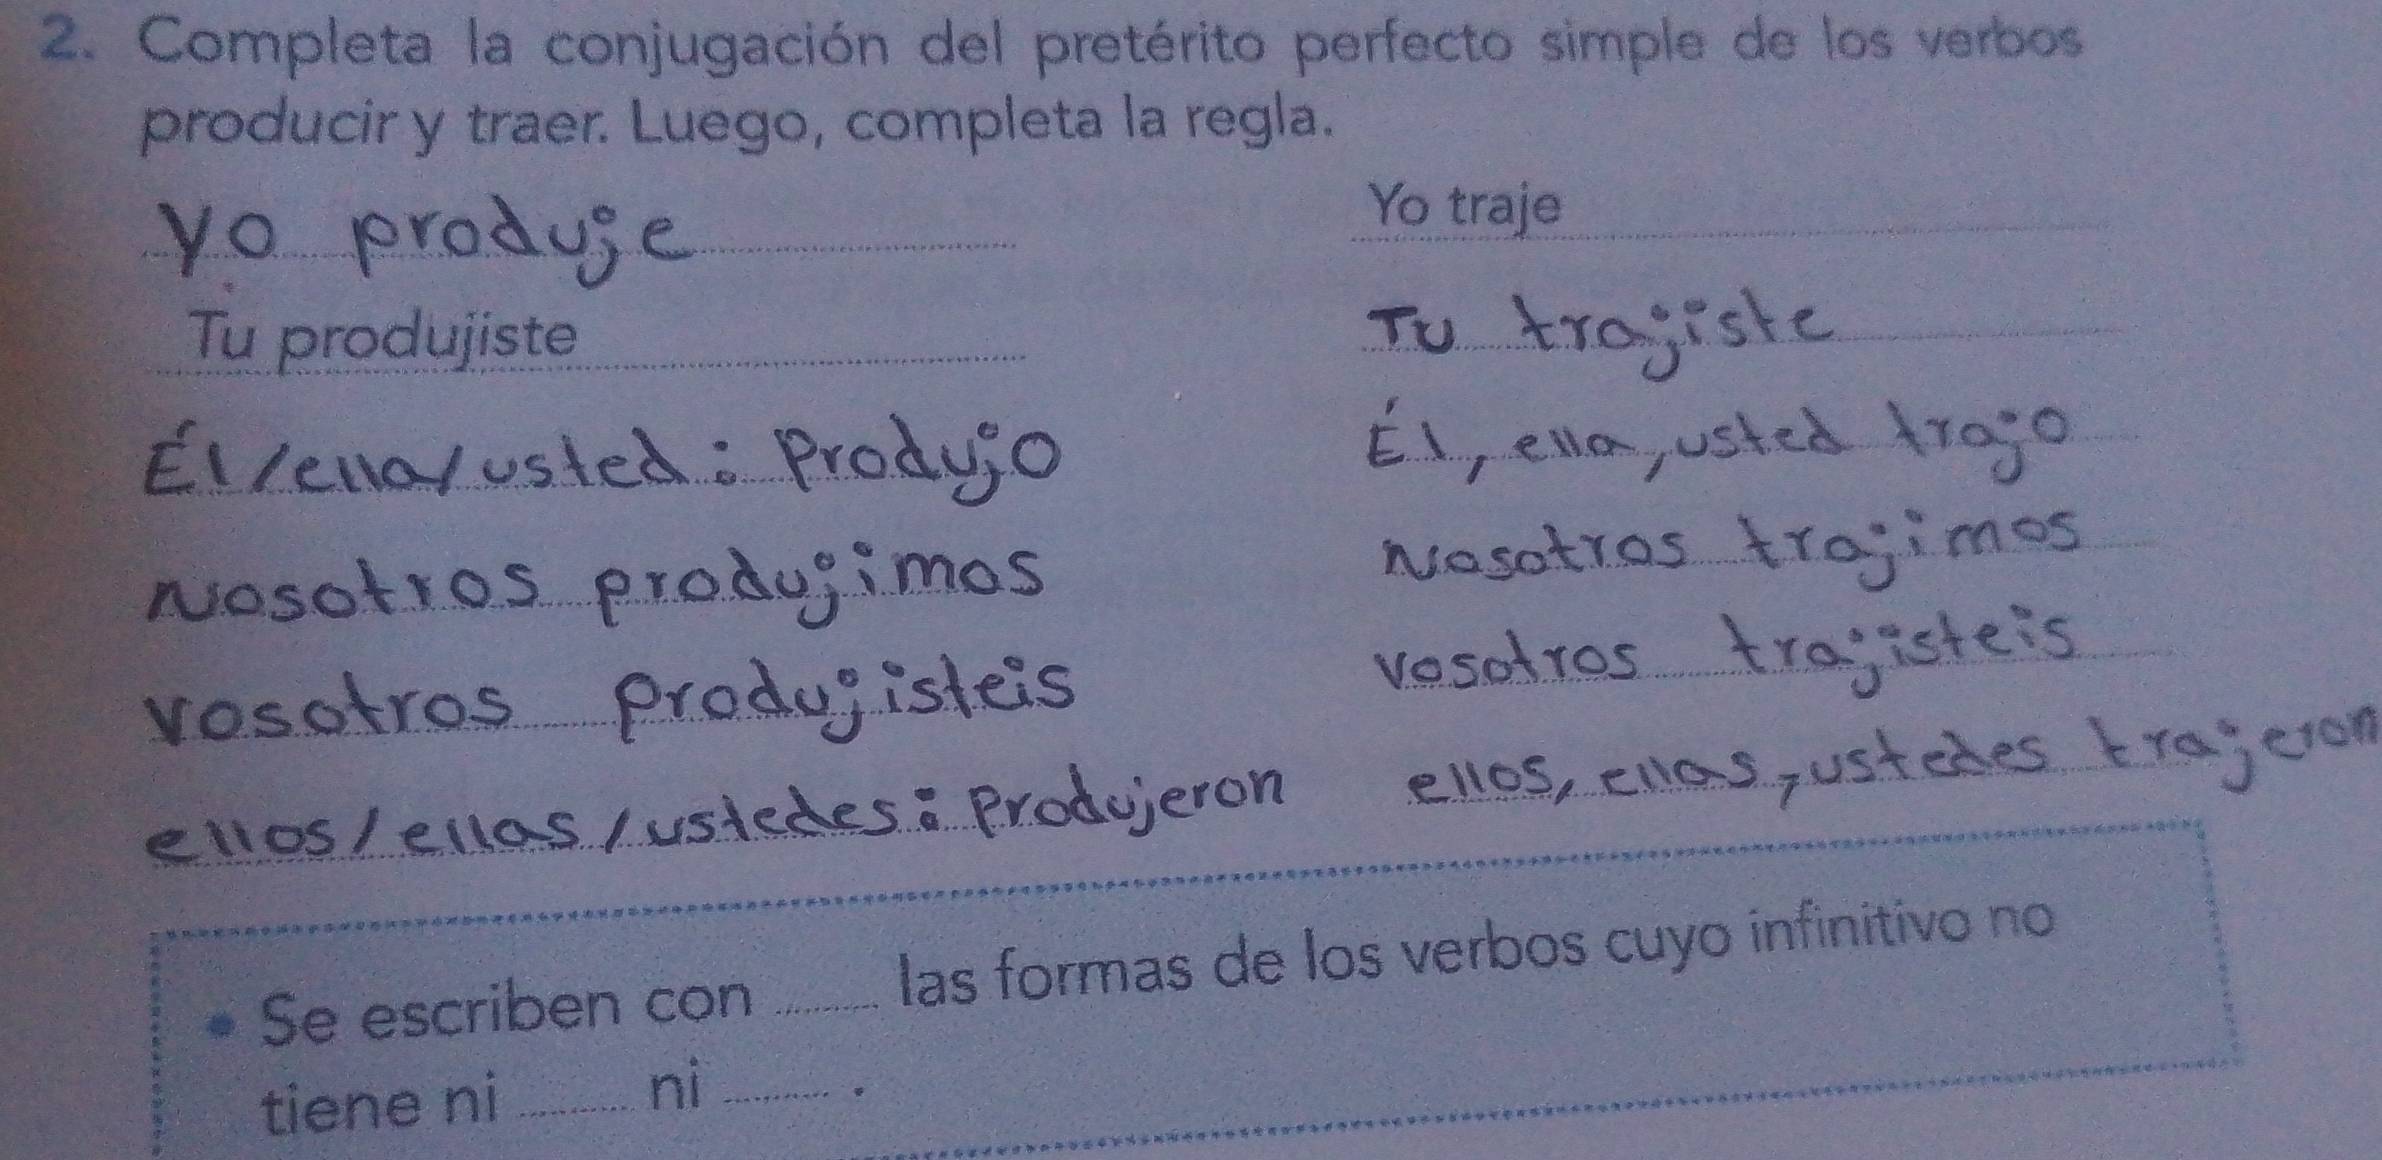 2. Completa la conjugación del pretérito perfecto simple de los verbos
producir y traer. Luego, completa la regla.
yo produje
Yo traje
Tu produjiste
Tu trajiste
Él/ella/usted: Produjo
Él, ella, usted trajo
Nosotros produjimos
Nosotros trajimos
vosotros produjisteis
vosotros trajisteis
ellos/ellas/ustedes: Produjeron
ellos, ellas, ustedes trajeron
• Se escriben con ........ las formas de los verbos cuyo infinitivo no
tiene ni ........ ni ........ .